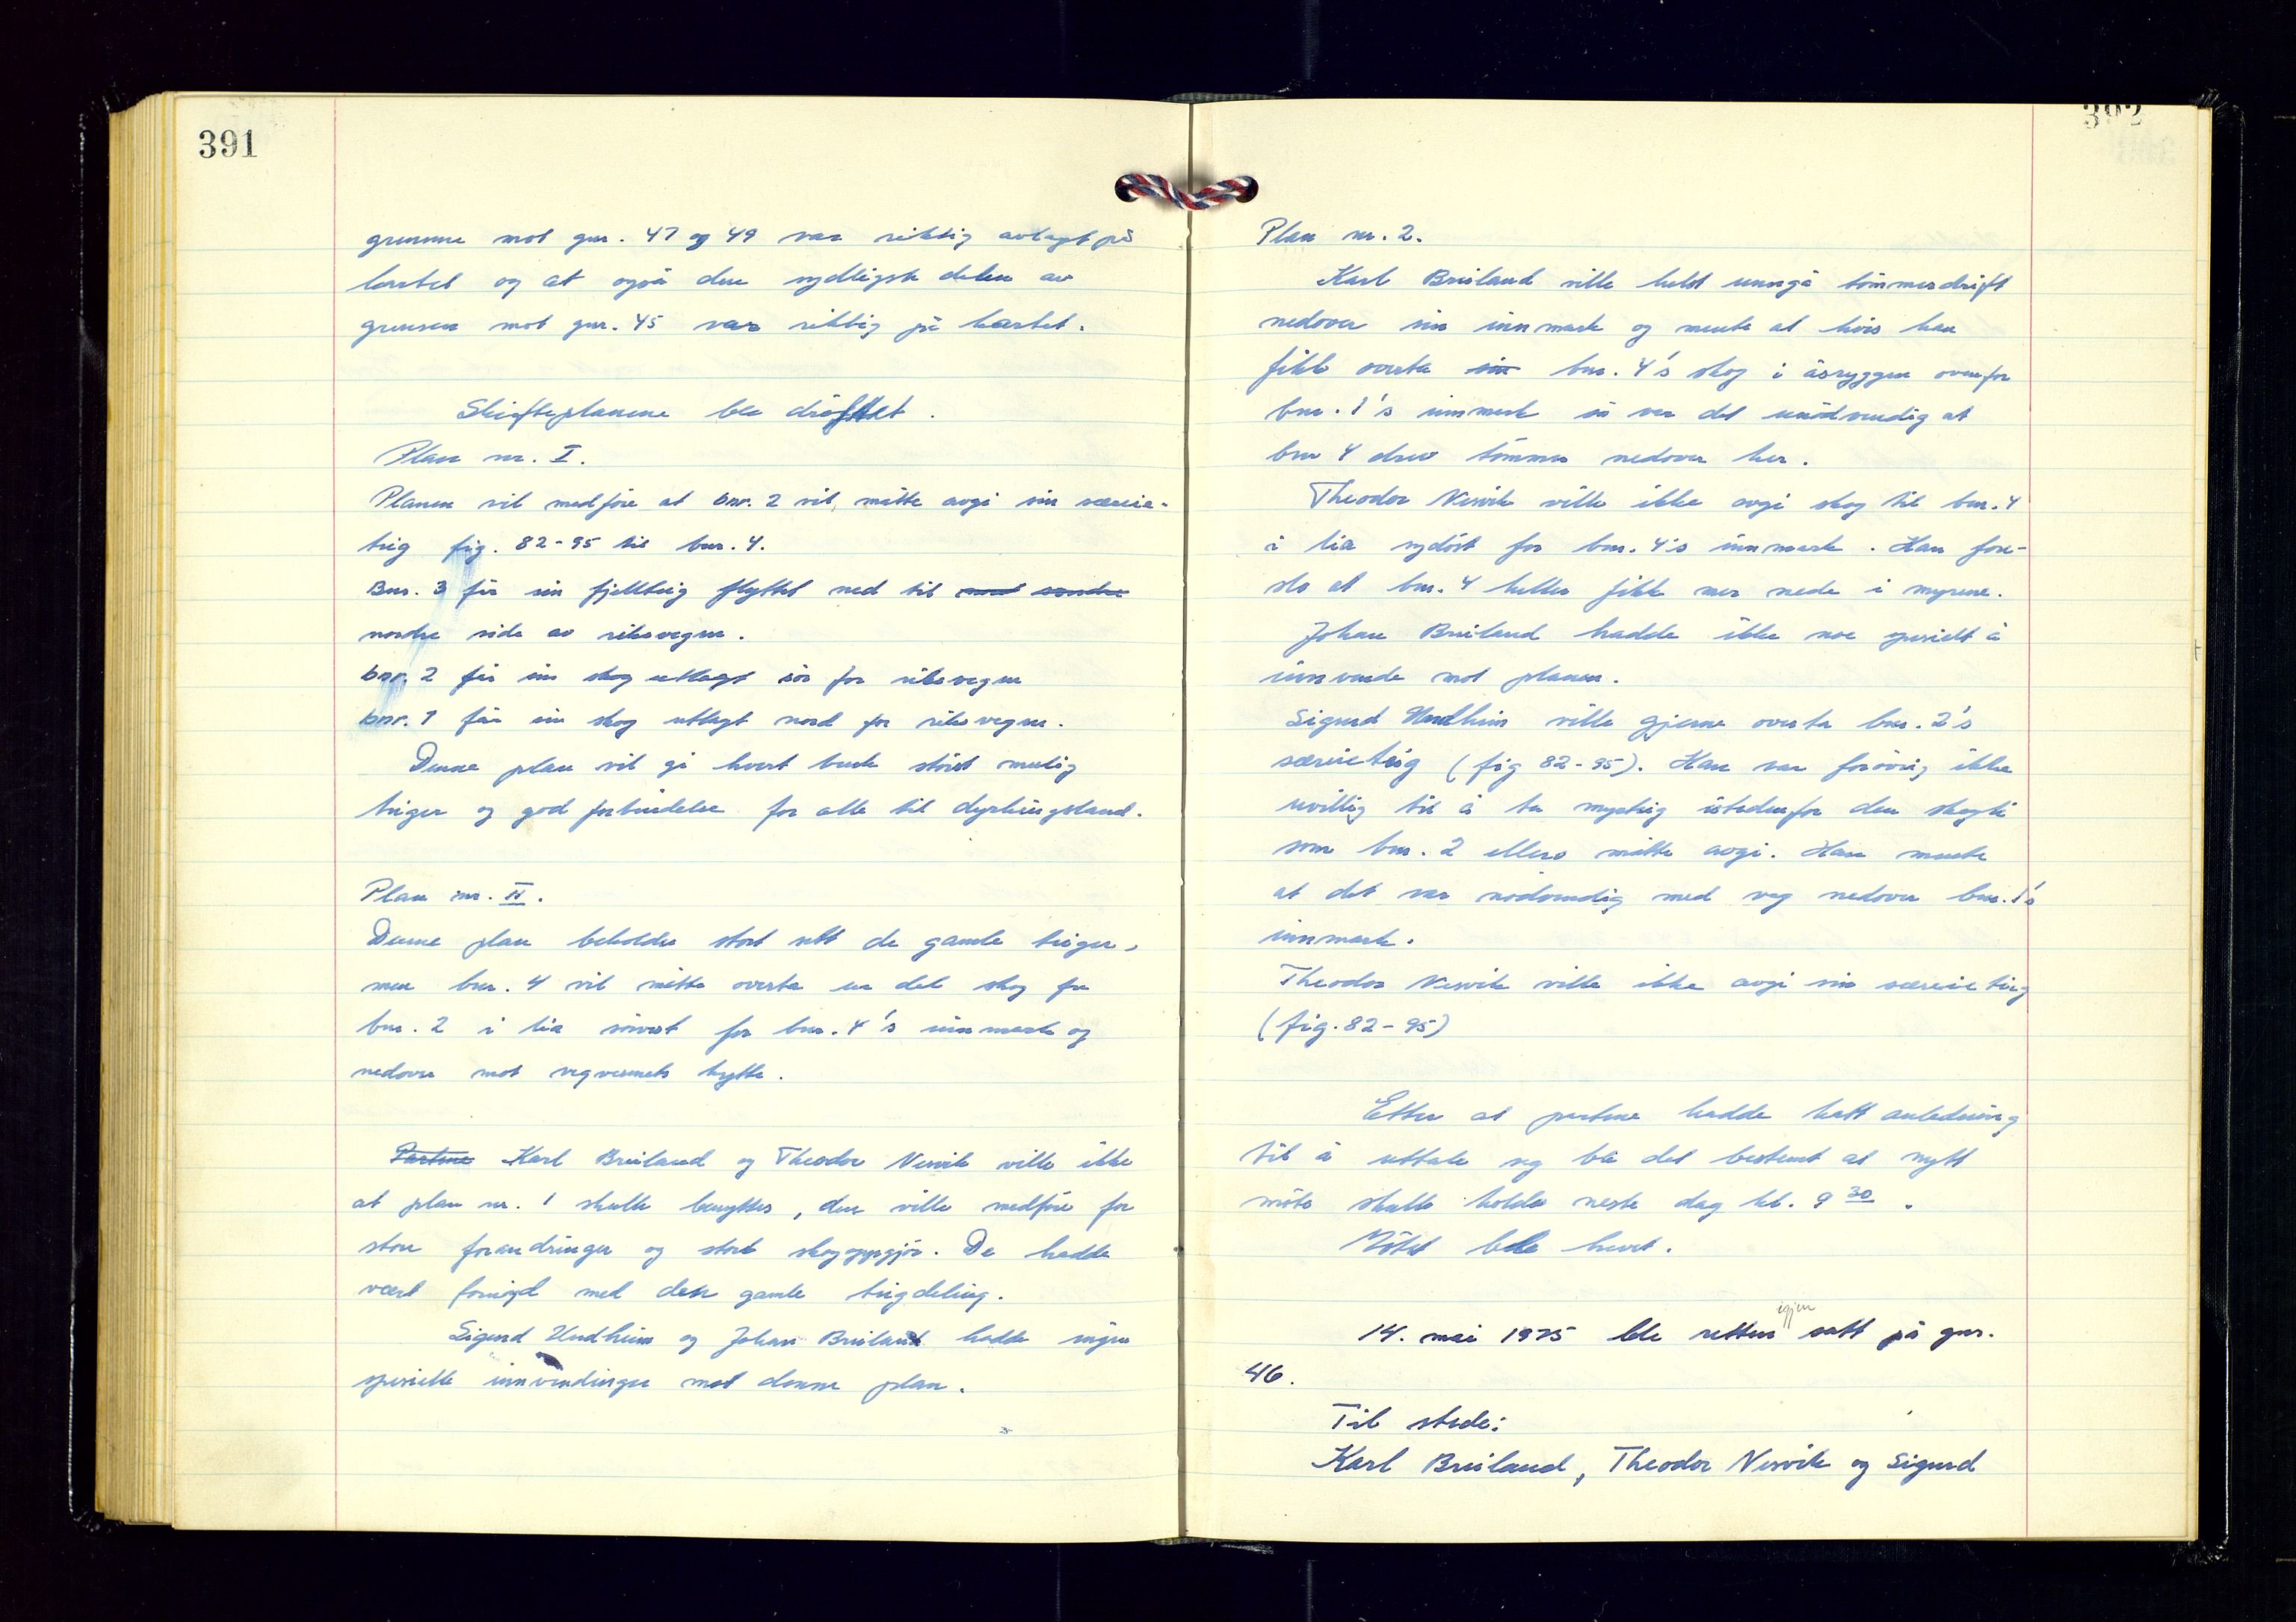 391
grensene mot gnr. 47 og 49 var riktig avlagt på
kartet og at også den sydligste delen av
grensen mot gnr. 45 var riktig på kartet.
Skifteplanene ble drøftet.
Plan nr. I.
Planen vil medføre at bnr. 2 vil måtte avgi sin særeie-
teig fig. 82-95 til bnr. 4.
Bnr. 3 får sin fjellteig flyttet ned til mot søndre
nordre side av riksvegen.
bnr. 2 får sin skog utlagt sør for riksvegen
bnr. 1 får sin skog utlagt nord for riksvegen.
Denne plan vil gi hvert bruk størst mulig
teiger og god forbindelse for alle til dyrkingsland.
Plan nr. II.
Denne plan beholder stort sett de gamle teiger,
men bnr. 4 vil måtte overta en del skog fra
bnr. 2 i lia sørvest for bnr. 4's innmark og
nedover mot vegvesenets hytte.
Partene Karl Breiland og Theodor Nesvik ville ikke
at plan nr. 1 skulle benyttes, den ville medføre for
store forandringer og stort skogoppgjør. De hadde
vært fornøyd med den gamle teigdeling.
Sigurd Undheim og Johan Breiland hadde ingen
spesielle innvendinger mot denne plan.
392
Plan nr. 2.
Karl Breiland ville helst unngå tømmerdrift
nedover sin innmark og mente at hvis han
fikk overta sin bnr. 4's skog i åsryggen ovenfor
bnr. 1's innmark så var det unødvendig at
bnr 4 drev tømmer nedover her.
Theodor Nesvik ville ikke avgi skog til bnr. 4
i lia sydøst for bnr. 4's innmark. Han fore-
slo at bnr. 4 heller fikk mer nede i myrene.
Johan Breiland hadde ikke noe spesielt å
innvende mot planen.
Sigurd Undheim ville gjerne overta bnr. 2's
særeieteig (fig 82-95). Han var forøvrig ikke
uvillig til å ta myrteig istedenfor den skogli
som bnr. 2 ellers måtte avgi. Han mente
at det var nødvendig med veg nedover bnr. 1's
innmark.
Theodor Nesvik ville ikke avgi sin særeieteig
(fig. 82-95)
Etter at partene hadde hatt anledning
til å uttale seg ble det bestemt at nytt
møte skulle holdes neste dag kl. 9 30.
Møtet ble hevet.
igjen
14. mai 1975 ble retten satt på gnr.
46.
Til stede:
Karl Breiland, Theodor Nesvik og Sigurd